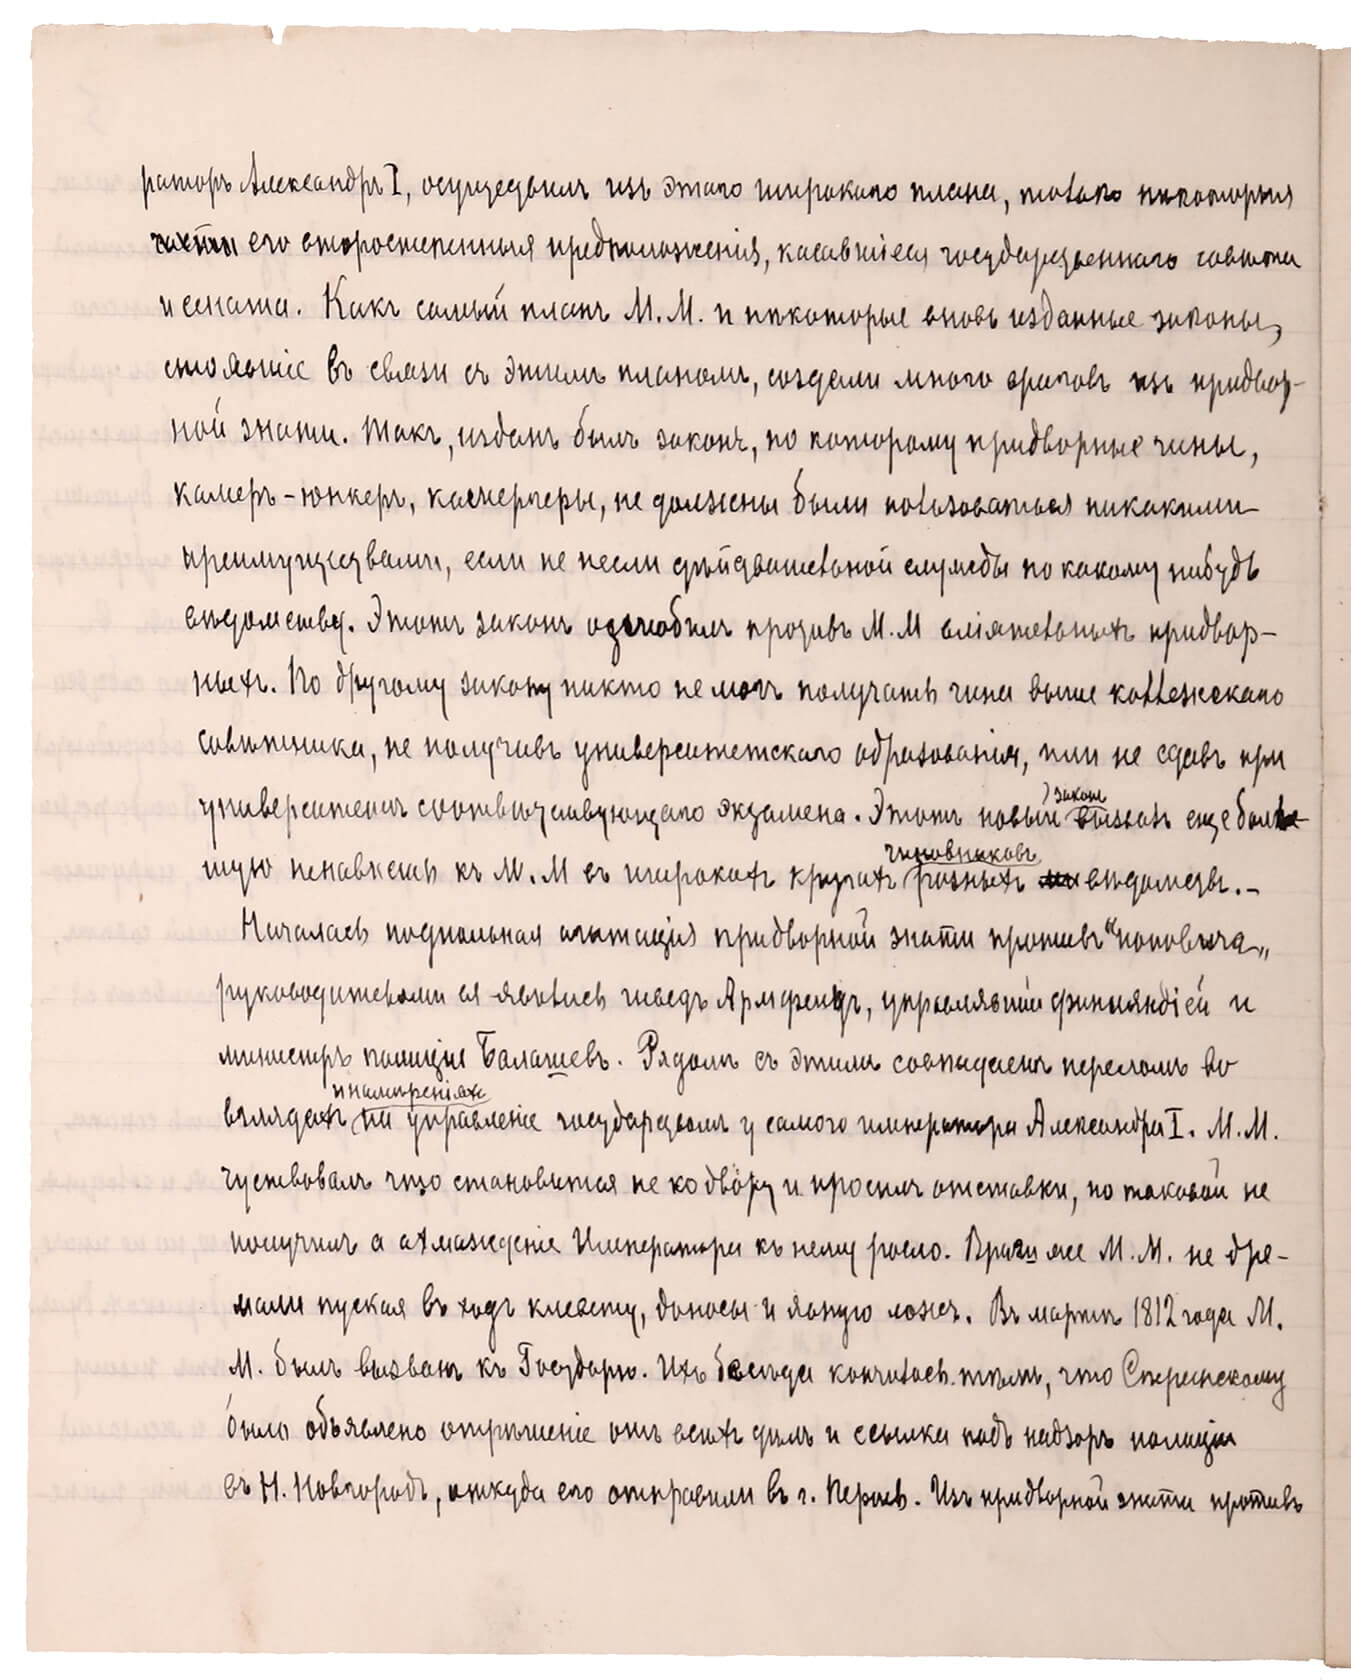 раторъ Александръ I, осуществилъ изъ этого широкаго плана, только нѣкоторыя
части его второстепенныя предположенія, касавшіеся государственнаго совѣта
и сената. Какъ самый планъ М.М. и нѣкоторые вновь изданные законы,
стоявшіе въ связи съ этимъ планомъ, создали много враговъ изъ придвор-
ной знати. Такъ, изданъ былъ законъ, по которому придворные чины,
камеръ-юнкеръ, камергеры, не должны были пользоваться никакими
преимуществами, если не несли дѣйствительной службы по какому нибудь
вѣдомству. Этотъ законъ озлобилъ противъ М.М вліятельныхъ придвор-
ныхъ. По другому закону никто не могъ получать чина выше коллежскаго
совѣтника, не получивъ университетскаго образованія, или не сдавъ при
университетѣ соотвѣтствующаго экзамена. Этотъ новый законъ вызвалъ еще боль-
шую ненависть къ М.М въ широкихъ кругахъ чиновниковъ разныхъ вѣдомствъ.-
Началась подпольная агитація придворной знати противъ "поповича"
руководителями ея явились шведъ Армфельдъ, управлявшій Финляндіей и
министръ полиціи Балашевъ. Рядомъ съ этимъ совпадаетъ переломъ во
взглядахъ и намѣреніяхъ на управленіе государствомъ у самого императора Александра I. М.М.
чуствовалъ что становится не ко двору и просилъ отставки, но таковой не
получилъ а охлажденіе Императора къ нему росло. Враги же М.М. не дре-
мали пуская въ ходъ клевету, доносы и явную ложь. Въ мартѣ 1812 года М.
М. былъ вызванъ къ Государю. Ихъ бесѣда кончилась тѣмъ, что Сперанскому
было объявлено отрѣшеніе отъ всѣхъ дѣлъ и ссылка подъ надзоръ полиціи
въ Н. Новгородъ, откуда его отправили въ г. Пермь. Изъ придворной знати противъ